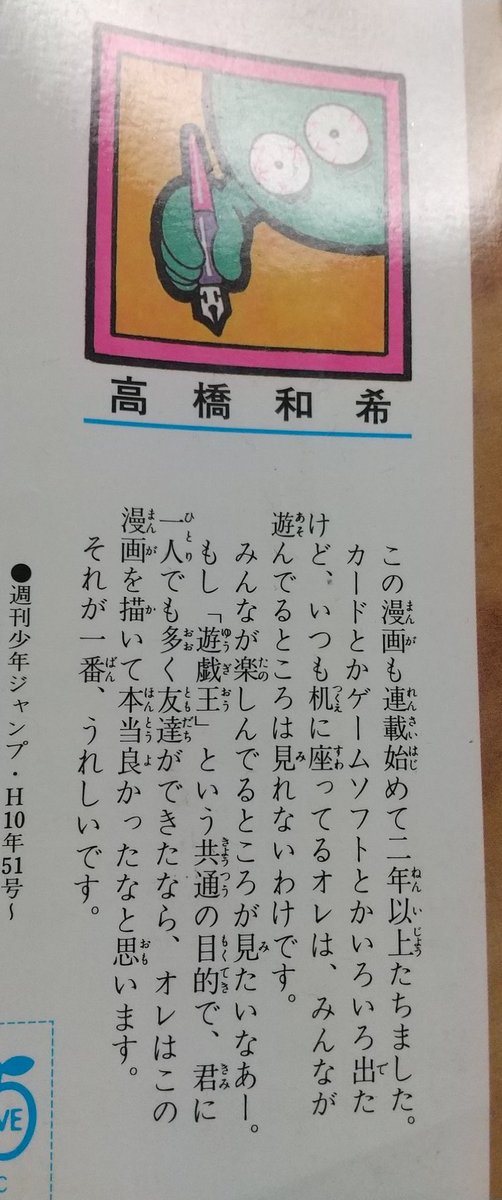 高橋和希
この漫画も連載始めて二年以上たちました。
カードとかゲームソフトとかいろいろ出た
けど、いつも机に座ってるオレは、みんなが
遊んでるところは見れないわけです。
みんなが楽しんでるところが見たいなあー。
もし「遊戯王」という共通の目的で、君に
一人でも多く友達ができたなら、オレはこの
漫画を描いて本当良かったなと思います。
それが一番、うれしいです。
●週刊少年ジャンプ・H10年51号〜
VE
C